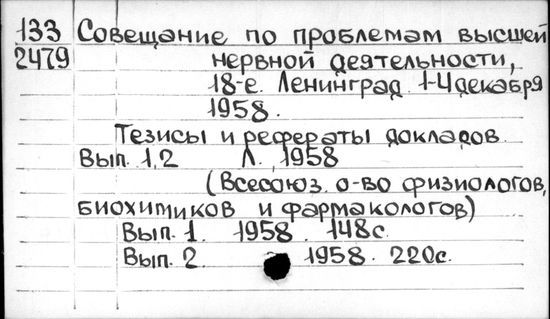 133 Совещание по проблемам высшей
2479 нервной деятельности,
18-е. Ленинград. 1-4 декабря
1958.
Тезисы и рефераты докладов.
Вып. 1,2 Л., 1958
(Всесоюз. о-во физиологов,
биохимиков и фармакологов)
Вып. 1. 1958. 148с.
Вып. 2. 1958. 220с.